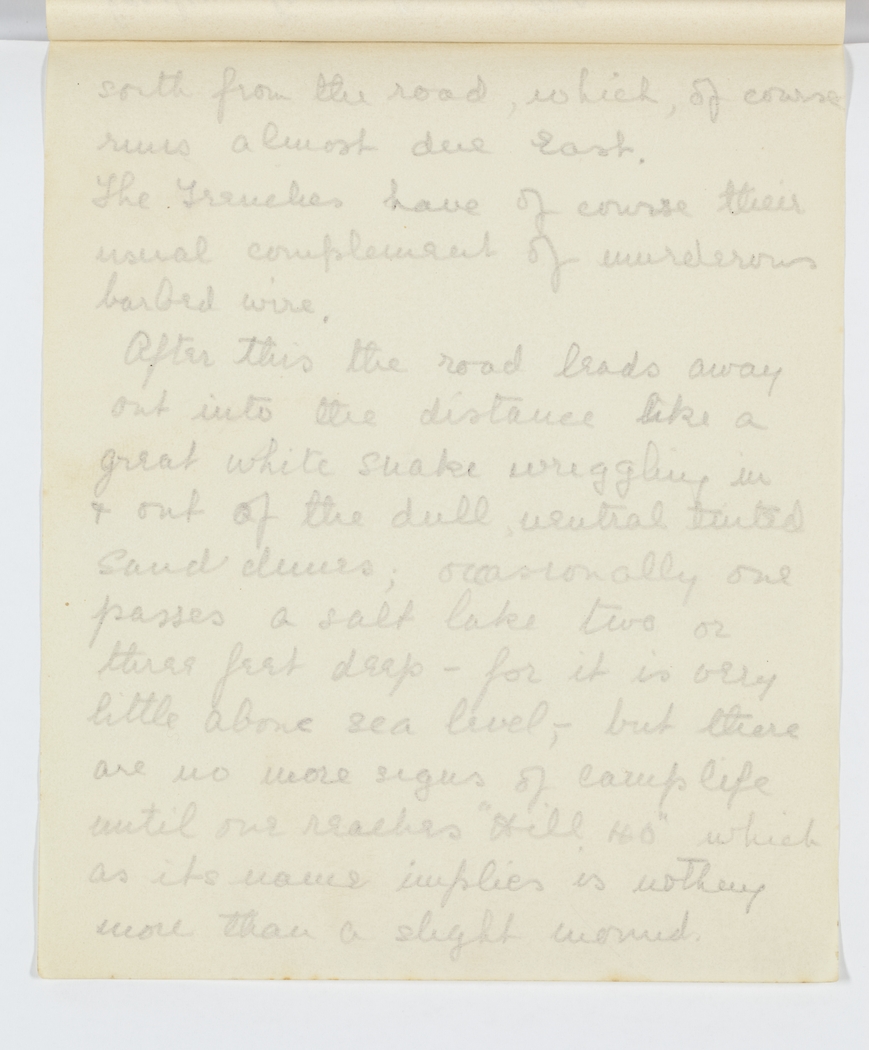 south from the road, which, of course
runs almost due East.
The Trenches have of course their
usual complement of murderous
barbed wire.
After this the road leads away
out into the distance like a
great white snake wriggling in
& out of the dull, neutral tinted
sand dunes; occasionally one
passes a salt lake two or
three feet deep - for it is very
little above sea level, - but there
are no more signs of camp life
until one reaches "Hill 40" which
as its name implies is nothing
more than a slight mound.